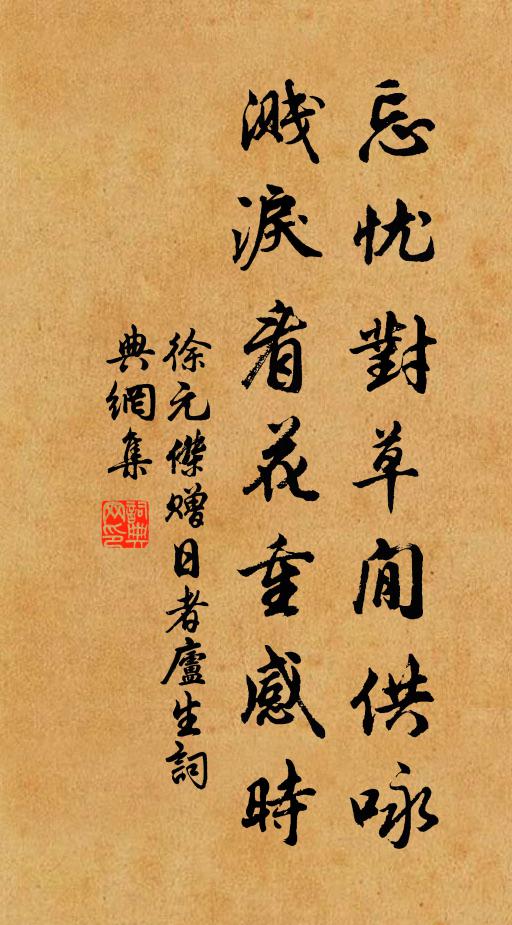 忘忧對草閒供咏
濺淚看花重感時
徐元傑贈日者廬生詞
典網集
詞典网印